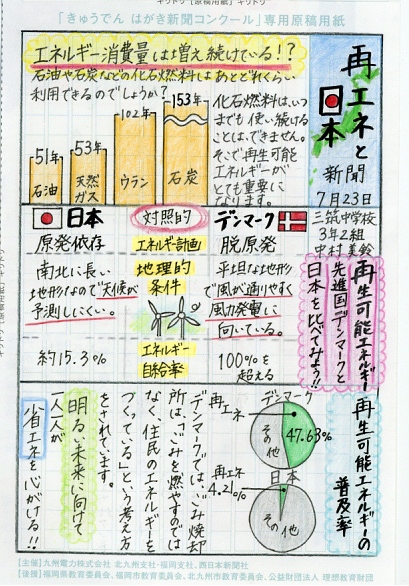 「きゅうでん はがき新聞コンクール」専用原稿用紙
再エネと
日本
新聞
7月23日
三筑中学校
3年2組
中村美鈴
エネルギー消費量は増え続けている!?
石油や石炭などの化石燃料はあとどれくらい
利用できるのでしょうか?
51年
石油
53年
天然
ガス
102年
ウラン
153年
石炭
化石燃料は、いつ
までも使い続ける
ことは、できません。
そこで再生可能
エネルギーが
とても重要に
なります。
再生可能エネルギー
先進国デンマークと
日本を比べてみよう!!
日本
対照的
デンマーク
原発依存
エネルギー計画
脱原発
南北に長い
地形なので天候が
予測しにくい。
地理的
条件
平坦な地形
で風が通りやすく
風力発電に
向いている。
約15.3%
エネルギー
自給率
100%を
超える
再生可能エネルギーの
普及率
デンマーク
再エネ
47.63%
その他
日本
再エネ
4.21%
その他
デンマークでは、ごみ焼却
所は、「ごみを燃やすのでは
なく、住民のエネルギーを
つくっている」という考え方
をされています。
明るい未来に向けて
一人一人が
省エネを心がける!!
【主催】九州電力株式会社 北九州支社・福岡支社、西日本新聞社
【後援】福岡県教育委員会、福岡市教育委員会、北九州市教育委員会、公益財団法人 理想教育財団